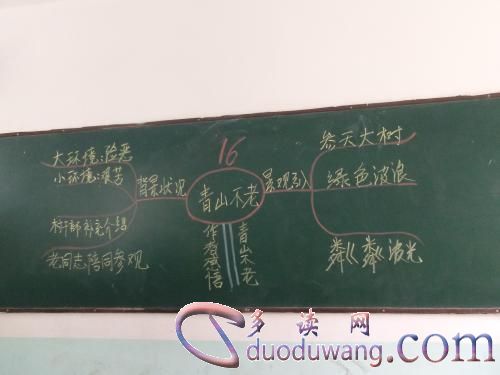 16
青山不老
背景状况
大环境:险恶
小环境:艰苦
村干部介绍
老同志陪同参观
景观
参天大树
绿色波浪
粼粼波光
作者感悟
青山不老
多读网
duoduwang.com